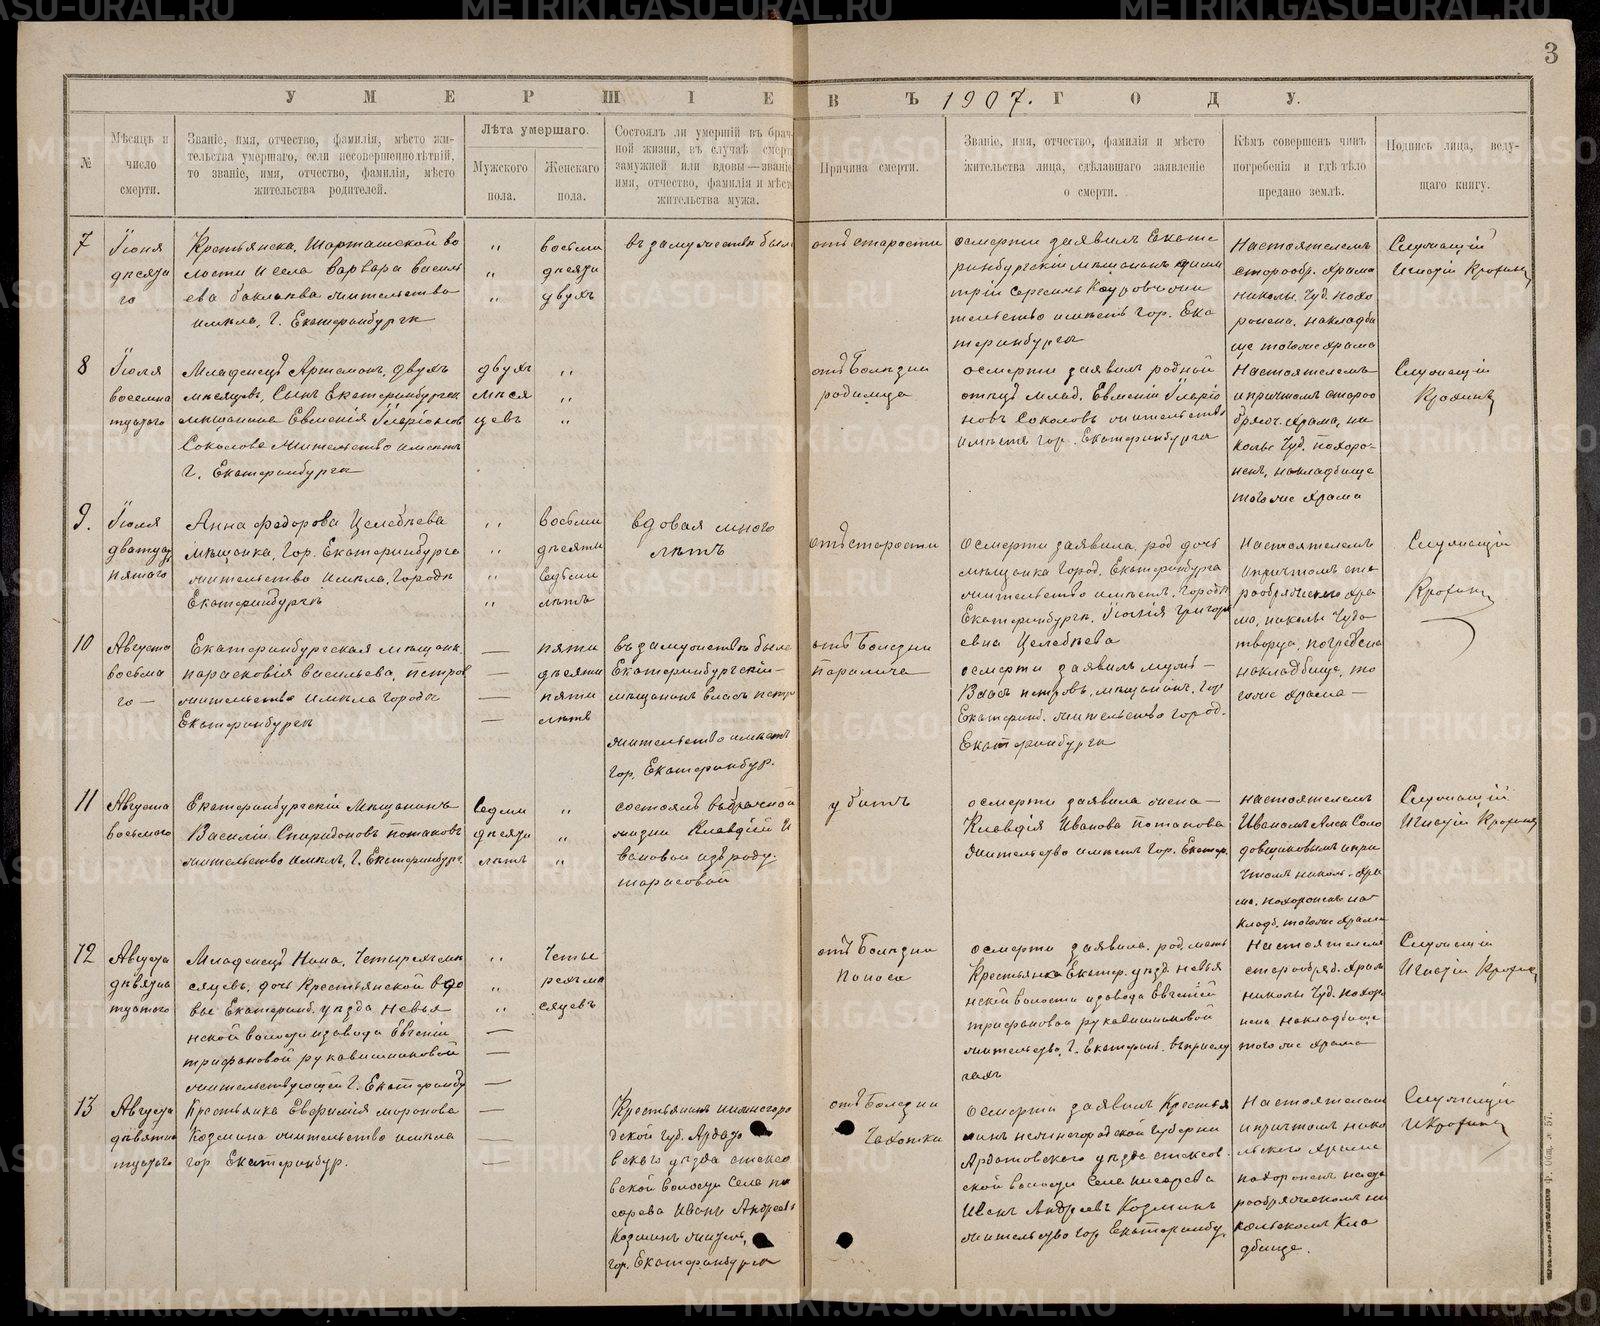 3
УМЕРШІЕ ВЪ 1907. ГОДУ.
№
Мѣсяцъ и
число
смерти.
Званіе, имя, отчество, фамилія, мѣсто жи-
тельства умершаго, если несовершеннолѣтній,
то званіе, имя, отчество, фамилія, мѣсто
жительства родителей.
Лѣта умершаго.
Мужского
пола.
Женскаго
пола.
Состоялъ ли умершій въ брач-
ной жизни, въ случаѣ смерти
замужней или вдовы—званіе
имя, отчество, фамилія и мѣсто
жительства мужа.
Причина смерти.
Званіе, имя, отчество, фамилія и мѣсто
жительства лица, сдѣлавшаго заявленіе
о смерти.
Кѣмъ совершенъ чинъ
погребенія и гдѣ тѣло
предано землѣ.
Подпись лица, веду-
щаго книгу.
7
Іюня
десята
го
Крестьянска, Шарташской во
лости и села Варвара Василь
ева жительство
имѣла, Г. Екатеринбурге
восьми
десяти
двухъ
въ замужестве был
отъ старости
осмерти заявилъ Екате
ринбургскій мещанинъ
трій
тельство имѣетъ гор. Ека
теринбурге
Настоятелемъ
старообр. храма
николы. Чуд. похо
ронена. накладби
ще тогоже храма
Служащій
Игнатій
8
Іюля
восемна
тцатого
Младенецъ Артемонъ, двухъ
месяцевъ, Сынъ Екатеринбургск
мещанина Евменія Іларіонов
Соколова Жительство имеетъ
Г. Екатеринбурге
двухъ
мѣся
цевъ
отъ Болезни
родимца
осмерти заявилъ родной
отецъ млад. Евменій Іларіо
новъ Соколовъ жительство
имѣетъ гор. Екатеринбурге
Настоятелемъ
ипричтомъ староо
брядч. храма, ни
колы Чуд. похоро-
ненъ, накладбище
тогоже храма
Служащій
9.
Іюля
дватцать
пятаго
Анна Федорова Целебеева
мѣщанка, Гор. Екатеринбурга
жительство имѣла, Городе
Екатеринбурге
восьми
десяти
седьми
лѣтъ
вдовая много
лѣтъ
отъ старости
Осмерти заявила. род. дочь
мещанка Город. Екатеринбурга
жительство имѣетъ. Городе
Екатеринбурге. Григорь
евна Целебеева
Настоятелемъ
ипричтомъ ста
рообрядческаго хра
ма, николы Чудо
творца, погребена
накладбище, то
гоже храма—
Служащій
10
Августа
восьма
го —
Екатеринбургская мещанк.
парасковія Васильева, петров
жительство имела городе
Екатеринбурге
пяти
десяти
пяти
лѣтъ
въ замужестве была
Екатеринбургскій—
мещанинъ Власъ петр
жительство имеетъ
гор. Екатеринбур.
отъ Болезни
Паралича
осмерти заявилъ мужъ—
Власъ петровъ, мещанинъ. Гор
Екатеринб. жительство город.
Екатеринбурге
11
Августа
восьмого
Екатеринбургскій Мещанинъ
Василій Спиридоновъ Потаповъ
жительство имелъ, Г. Екатеринбург.
седми
десяти
лѣтъ
состоялъ въбрачной
жизни Клавдіи И
вановой изъроду.
тарасовой
убитъ
осмерти заявила жена—
Клавдія Иванова Потапова
жительство имеетъ гор. Екатер.
настоятелемъ
Иваномъ Алек. Соло
довщиковымъ ипри
чтомъ николь. хра
ма, похороненъ на
кладб. тогоже храма
Служащій
Игнатій
12
Августа
девятна
тцатого
Младенецъ Нина, Четырехме
сяцевъ, дочь Крестьянской вдо
вы Екатеринб. уезда Невья
нской волости изавода Евгеніи
трифановой рукавишниковой
жительствующей Г. Екатеринбу
Четы
рехме
сяцевъ
отъ Болезни
Поноса
осмерти заявила. род. мать
Крестьянка Екатер. уезд. Невья
нской волости изавода Евгеній
трифановой рукавишниковой
жительство, Г. Екатеринб. въприслу
гахъ
Настоятелемъ
старообряд. храм
николы Чуд. похор
нена накладбище
тогоже храма
Служащій
Игнатій
13
Августа
девятна
тцатого
Крестьянка Евфимія миронова
Козмина жительство имела
гор. Екатеринбур.
Крестьянинъ нижегоро
дской губ. Ардато
вского уезда
вской волости Села пи
сарева Иванъ Андреевъ
Козминъ
гор. Екатеринбурге
отъ Болезни
Чахотки
осмерти заявилъ Крестья
нинъ нижегородской губерни
Ардатовского уезда
ской волости Села писарева
Иванъ Андреевъ Козминъ
жительство гор. Екатеринбу.
Настоятелемъ
ипричтомъ нико
льского храма
похороненъ наста
рообрядческомъ ни
кольскомъ Кла
дбище.
Служащій
METRIKI.GASO-URAL.RU